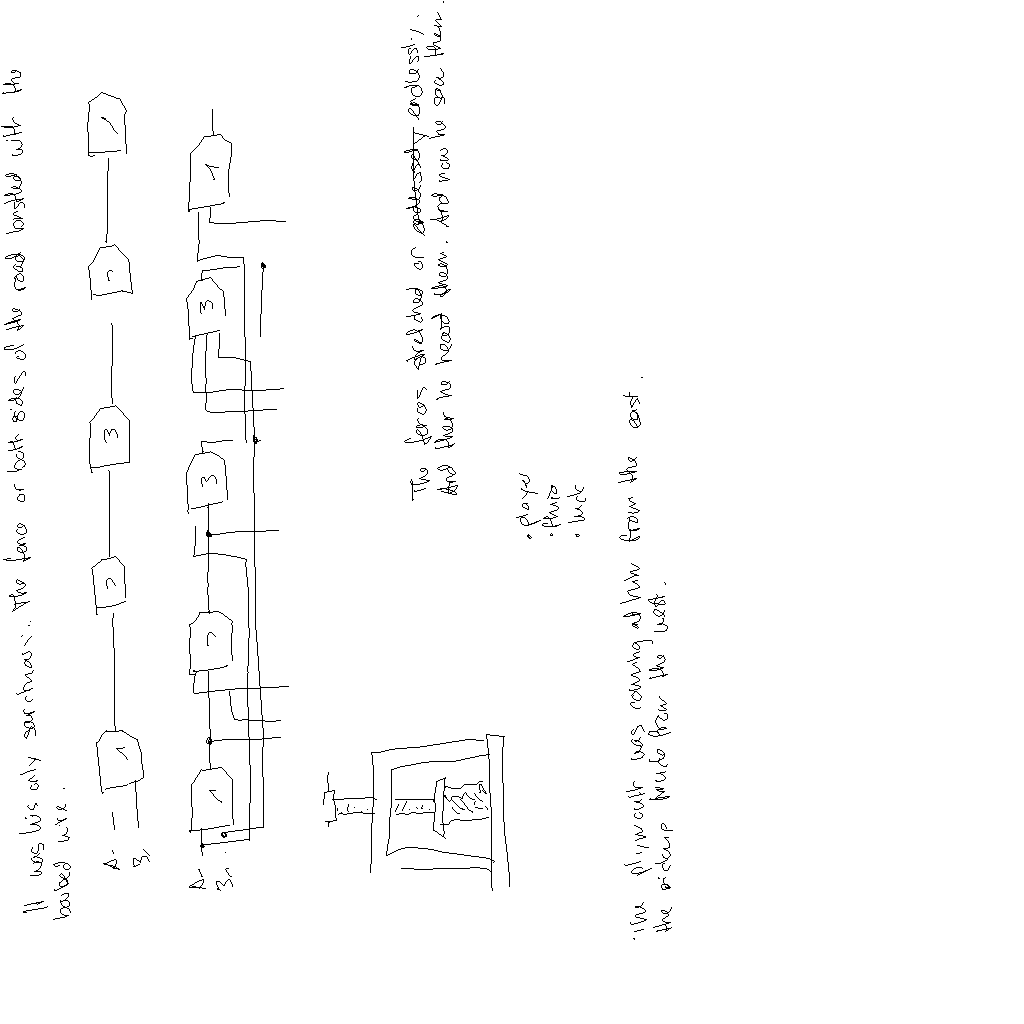 It was his only sanctuary. The fence on both sides of the road bristled with the
barbed wire.
A-
B,
1
2
3
2
1
A-
B,
1
2
3
3
1
The fences stretched on endlessly endlessly.
And then he heard them. And now he saw them.
• player
• thurio
• luck
• The Plymouth was coming at him from the east.
the pickup truck from the west.